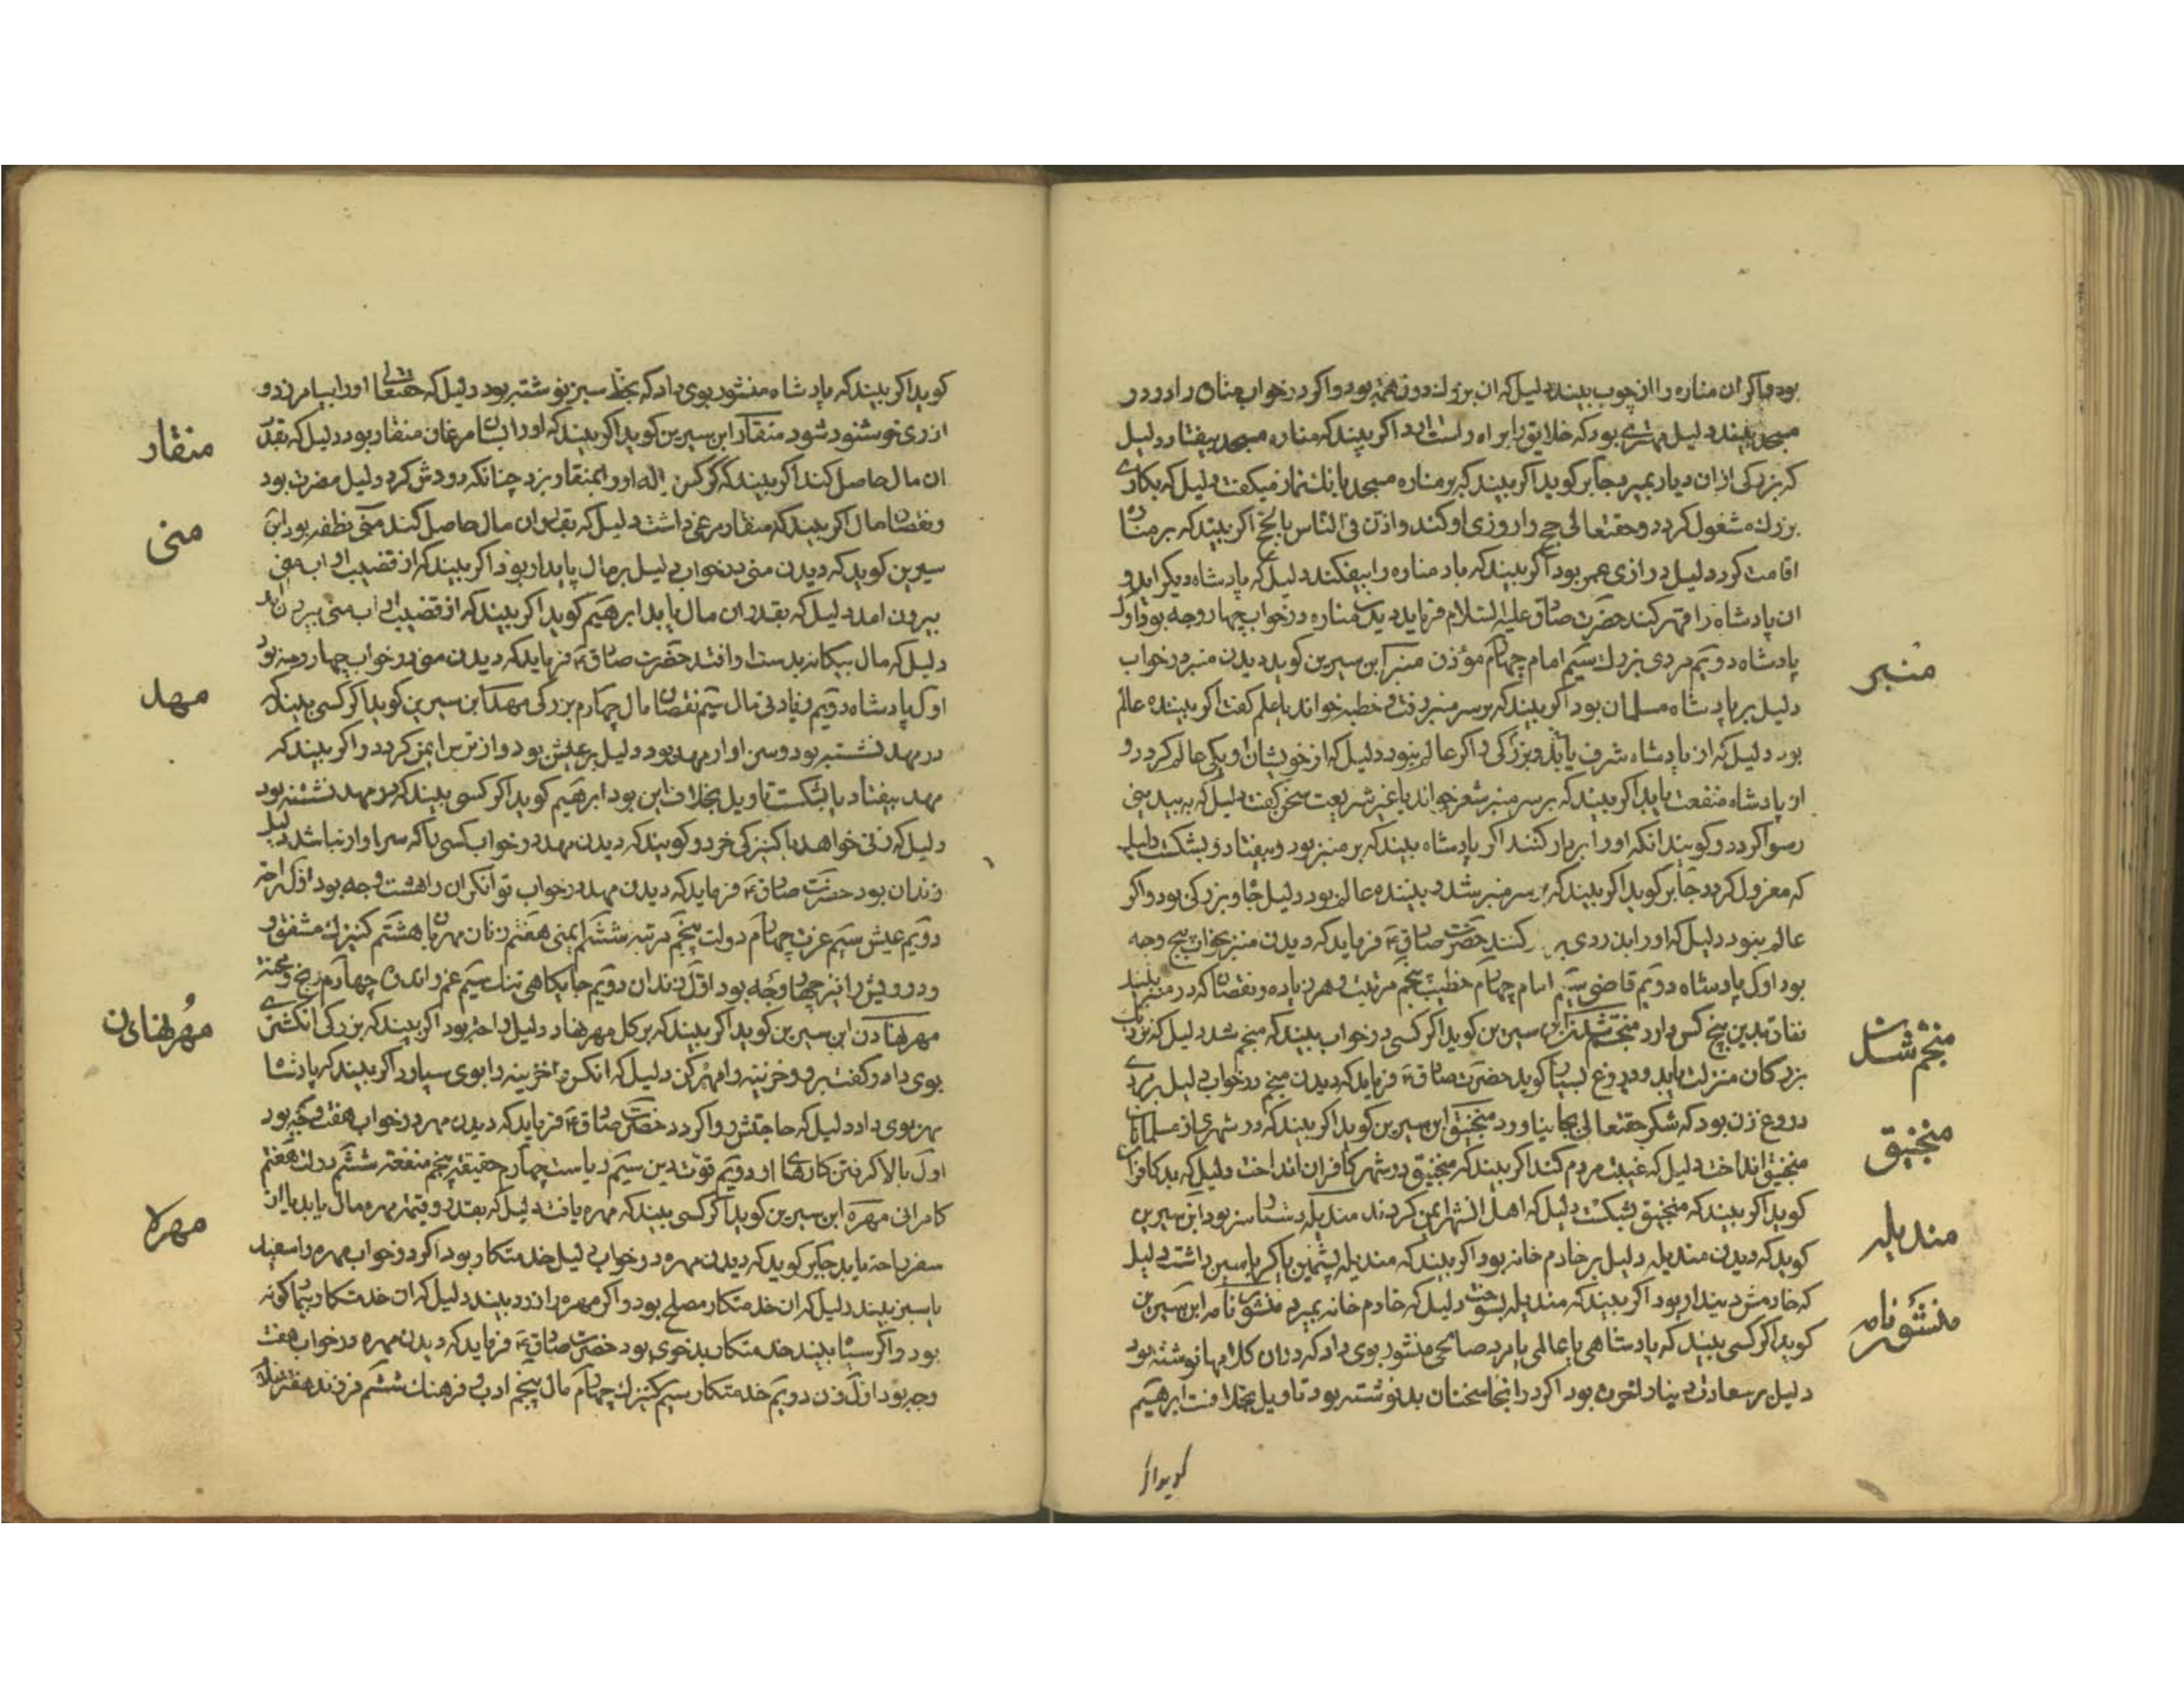 بود و اکر ان مناره را از چوب بیند دلیل که ان بزرك دروزن بود و اکر در خواب مناره را در در
مسجد بیند دلیل بود که خلایق را براه راست ارد اکر بیند که مناره مسجد بیفتاد دلیل
که بزرکی از ان دیار بمیرد جابر کوید اکر بیند که بر مناره مسجد بانك نماز میکفت دلیل که بکاری
بزرك مشغول کردد و حقتعالی حج را روزی او کند واذن فی الناس بالحج اکر بیند که بر مناره
اقامت کرد دلیل درازی عمر بود اکر بیند که باد مناره را بیفکند دلیل که پادشاه دیکر اید و
ان پادشاه را قهر کند حضرت صادق علیه السلام فرماید دیدن مناره در خواب چهار وجه بود اول
پادشاه دویم مردی بزرك سیم امام چهارم مؤذن منبر ابن سیرین کوید دیدن منبر در خواب
منبر
دلیل بر پادشاه مسلمان بود اکر بیند که بر سر منبر رفت و خطبه خواند یا علم کفت اکر بیننده عالم
بود دلیل که از پادشاه شرف یابد و بزرکی و اکر عالم نبود دلیل که از خویشان او یکی عالم کردد و
از پادشاه منفعت یابد اکر بیند که بر سر منبر شعر خواند یا غیر شریعت سخن کفت دلیل که به بیدینی
رسوا کردد و کویند انکه او را بر دار کنند اکر پادشاه بیند که بر منبر بود و بیفتاد و بشکست دلیل
که معزول کردد جابر کوید اکر بیند که بر سر منبر شد و بیننده عالم بود دلیل جاه و بزرکی بود و اکر
عالم نبود دلیل که او را کنند حضرت صادق فرماید که دیدن منبر بخواب پنج وجه
بود اول پادشاه دویم قاضی سیم امام چهارم خطیب پنجم مرتبت و هر زیاده و نقصان که در منبر بیند
بدین پنج کس دارد منجم شدن ابن سیرین کوید اکر کسی در خواب بیند که منجم شد دلیل که نزدیك
منجم شدن
بزرکان منزلت یابد و دروغ بسیار کوید حضرت صادق فرماید که دیدن منجم در خواب دلیل بر مردی
دروغ زن بود که شکر حقتعالی بجا نیاورد منجنیق ابن سیرین کوید اکر بیند که در شهری از مسلمانان
منجنیق
منجنیق انداخت دلیل که غیبت مردم کند اکر بیند که منجنیق در شهر کافران انداخت دلیل که بد کافران
کوید اکر بیند که منجنیق بشکست دلیل که اهل ان شهر ایمن کردند مندیله دستار سر بود ابن سیرین
مندیله
کوید که دیدن مندیله دلیل بر خادم خانه بود اکر بیند که مندیله پشمین یا کرباسین داشت دلیل
که خادمش دیندار بود اکر بیند که مندیله بسوخت دلیل که خادم خانه بمیرد منشور نامه ابن سیرین
منشور نامه
کوید اکر کسی بیند که پادشاهی یا عالمی یا مرد صالحی منشور بوی داد که در ان کلامها نوشته بود
دلیل بر سعادت دنیا و اخرت بود اکر در انجا سخنان بد نوشته بود تاویل بخلاف است ابرهیم
کوید اکر
کوید اکر بیند که پادشاه منشور بوی داد که بخط سبز نوشته بود دلیل که حقتعالی او را بیامرزد و
از وی خوشنود شود منقار ابن سیرین کوید اکر بیند که او را بسان مرغان منقار بود دلیل که بقدر
منقار
ان مال حاصل کند اکر بیند که کرکس او را بمنقار بزد چنانکه دردش کرد دلیل مضرت بود
و نقصان مال اکر بیند که منقار مرغی داشت دلیل که بقدر ان مال حاصل کند منی نطفه بود ابن
منی
سیرین کوید که دیدن منی در خواب دلیل بر مال پایدار بود اکر بیند که از قضیب او اب منی
بیرون امد دلیل که بقدر ان مال یابد ابرهیم کوید اکر بیند که از قضیب او اب منی بیرون اید
دلیل که مال بیکانه بدست او افتد حضرت صادق فرماید که دیدن منی در خواب چهار وجه بود
اول پادشاه دویم زیادتی مال سیم نقصان مال چهارم بزرکی مهد ابن سیرین کوید اکر کسی بیند که
مهد
در مهد نشسته بود و سزاوار مهد بود دلیل بر عیش بود و از ترس ایمن کردد و اکر بیند که
مهد بیفتاد یا بشکست تاویل بخلاف این بود ابرهیم کوید اکر کسی بیند که در مهد نشسته بود
دلیل که زنی خواهد یا کنیزکی خرد و کویند که دیدن مهد در خواب کسی را که سزاوار نباشد دلیل
زندان بود حضرت صادق فرماید که دیدن مهد در خواب توانکران را هشت وجه بود اول راحت
دویم عیش سیم عزت چهارم دولت پنجم مرتبه ششم ایمنی هفتم زنان مهربان هشتم کنیزك مشفق و
و درویش را نیز چهار وجه بود اول زندان دویم جایکاهی تنك سیم غم و اندوه چهارم رنج و محنت
مهر نهادن ابن سیرین کوید اکر بیند که بر کل مهر نهاد دلیل راحت بود اکر بیند که بزرکی انکشتری
مهر نهادن
بوی داد و کفت برو و خزینه را مهر کن دلیل که انکس خزینه را بوی سپارد اکر بیند که پادشاه
مهر بوی داد دلیل که حاجتش روا کردد حضرت صادق فرماید که دیدن مهر در خواب هفت وجه بود
اول بالا کرفتن کارهای او دویم قوت دین سیم ریاست چهارم حقیقت پنجم منفعت ششم دولت هفتم
کامرانی مهره ابن سیرین کوید اکر کسی بیند که مهره یافت دلیل که بقدر و قیمت مهره مال یابد یا از
مهره
سفر راحت یابد جابر کوید که دیدن مهره در خواب دلیل خدمتکار بود اکر در خواب مهره را سفید
یا سبز بیند دلیل که ان خدمتکار مصلح بود و اکر مهره را زرد بیند دلیل که ان خدمتکار بیمار کونه
بود و اکر سیاه بیند خدمتکار بدخوی بود حضرت صادق فرماید که دیدن مهره در خواب هفت
وجه بود اول زن دویم خدمتکار سیم کنیزك چهارم مال پنجم ادب و فرهنك ششم فرزند هفتم